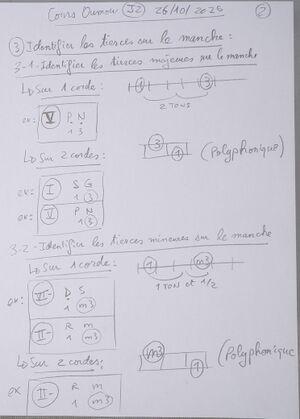 Cours Oumou (J2) 26/10/2025 (2)
(3) Identifier les tierces sur le manche :
3-1-Identifier les tierces majeures sur le manche
↳ Sur 1 corde :
1 3
2 TONS
ex: V P N
1 3
↳ Sur 2 cordes :
3 1 (Polyphonique)
ex: I S G
1 3
ex: V P N
1 3
3-2-Identifier les tierces mineures sur le manche
↳ Sur 1 corde :
1 m3
1 TON et 1/2
ex: VI- D S
1 m3
II- R m
1 m3
↳ Sur 2 cordes :
m3 1 (Polyphonique
ex II- R m
1 m3